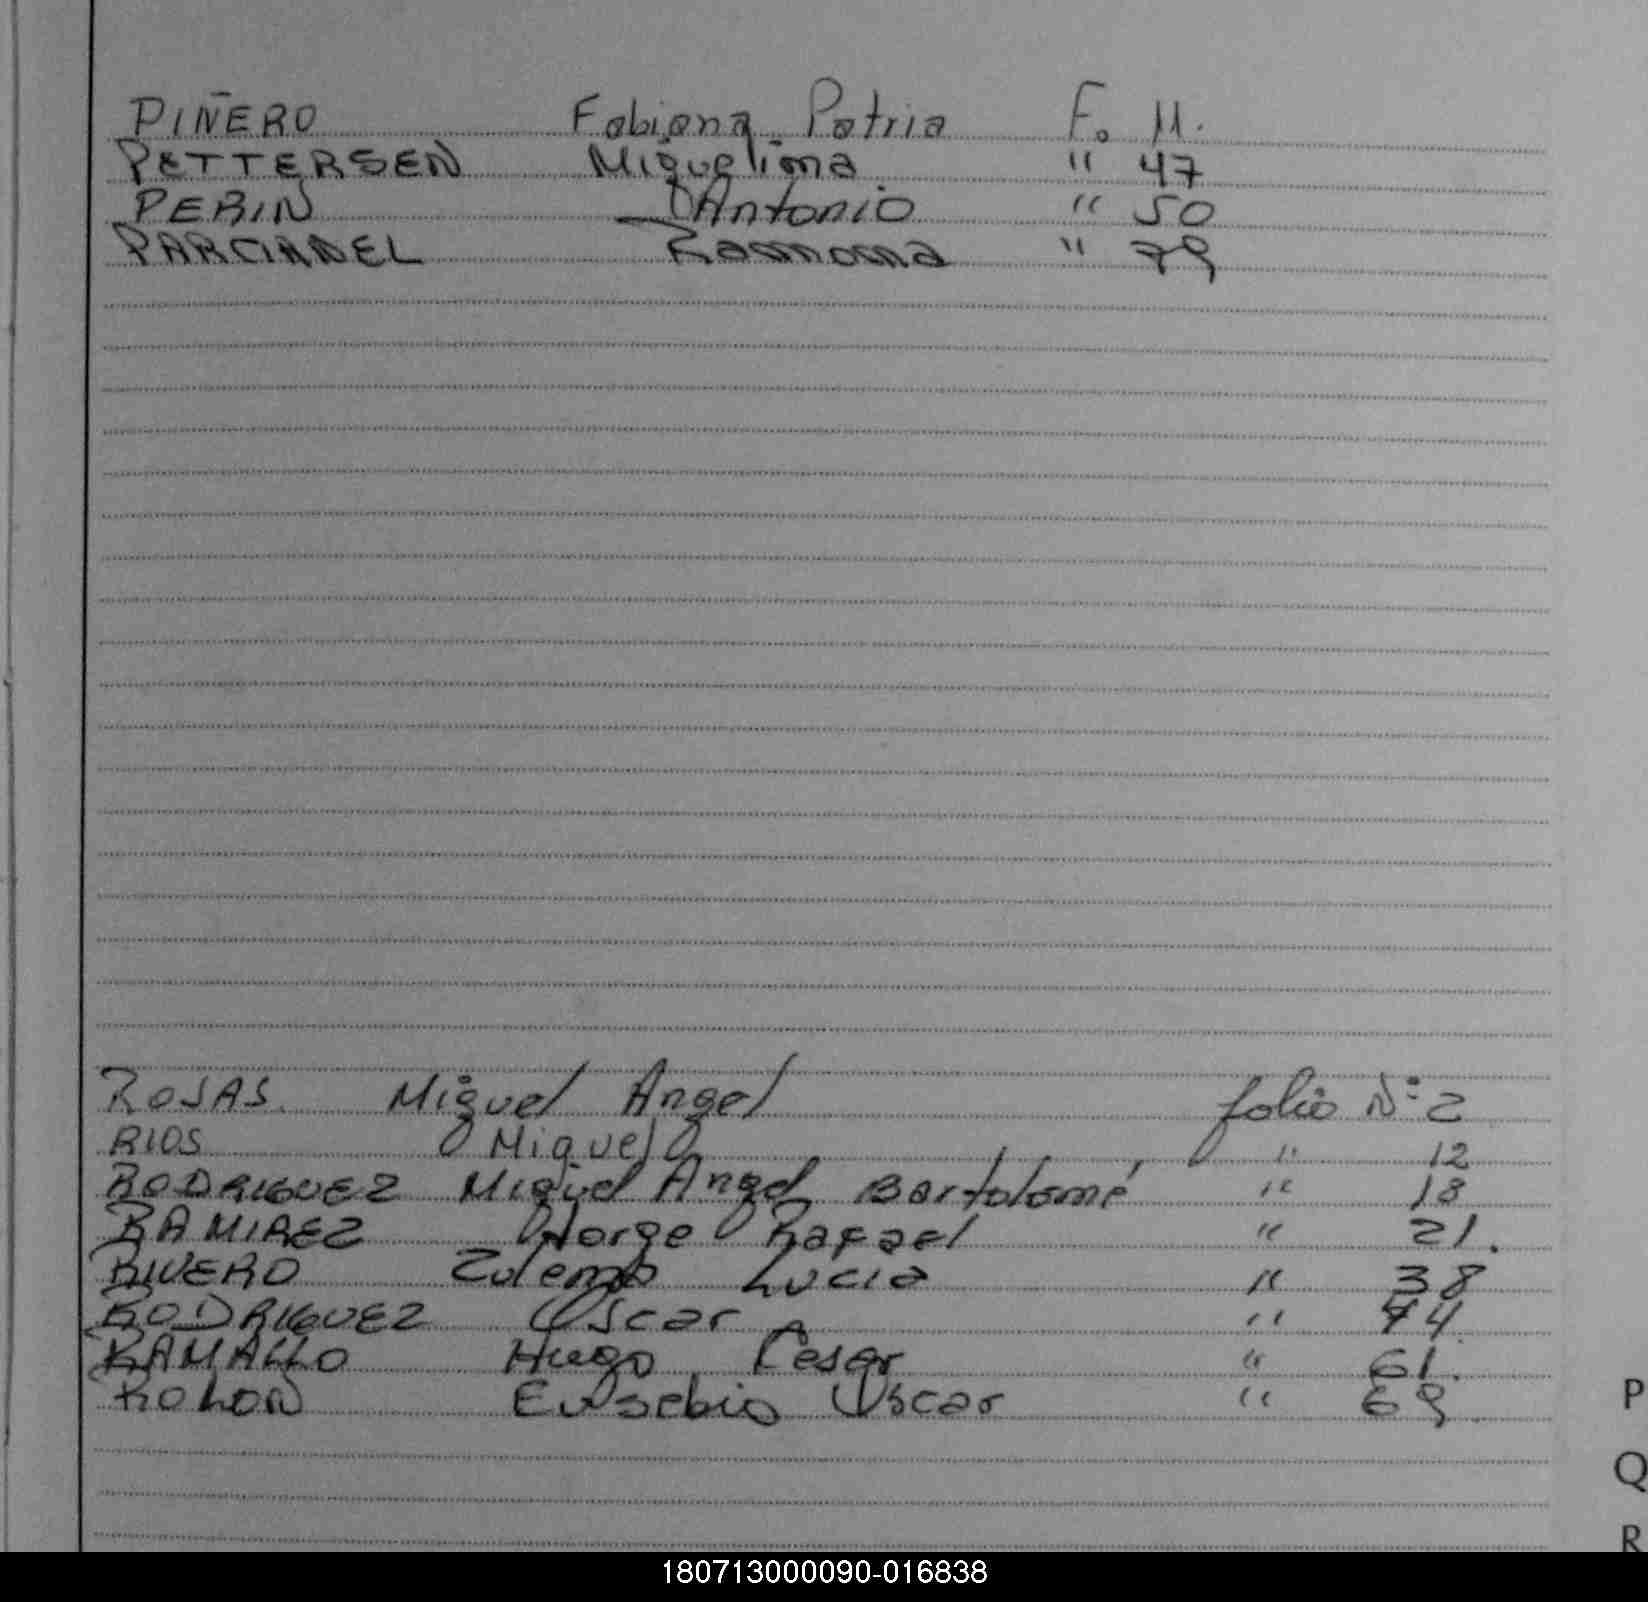 PIÑERO Fabiana Patria F. 11.
PETTERSEN Miguelina " 47
PERIN Antonio " 50
PARCIANDEL Ramona " 79
ROSAS. Miguel Angel folio Nº 2
RIOS Miguel " 12
RODRIGUEZ Miguel Angel Bartolomé " 18
RAMIREZ Jorge Rafael " 21.
RIVERO Zulema Lucia " 38
RODRIGUEZ Oscar " 44.
RAMALLO Hugo Cesar " 61.
ROLON Eusebio Oscar " 69
P
Q
R
180713000090-016838